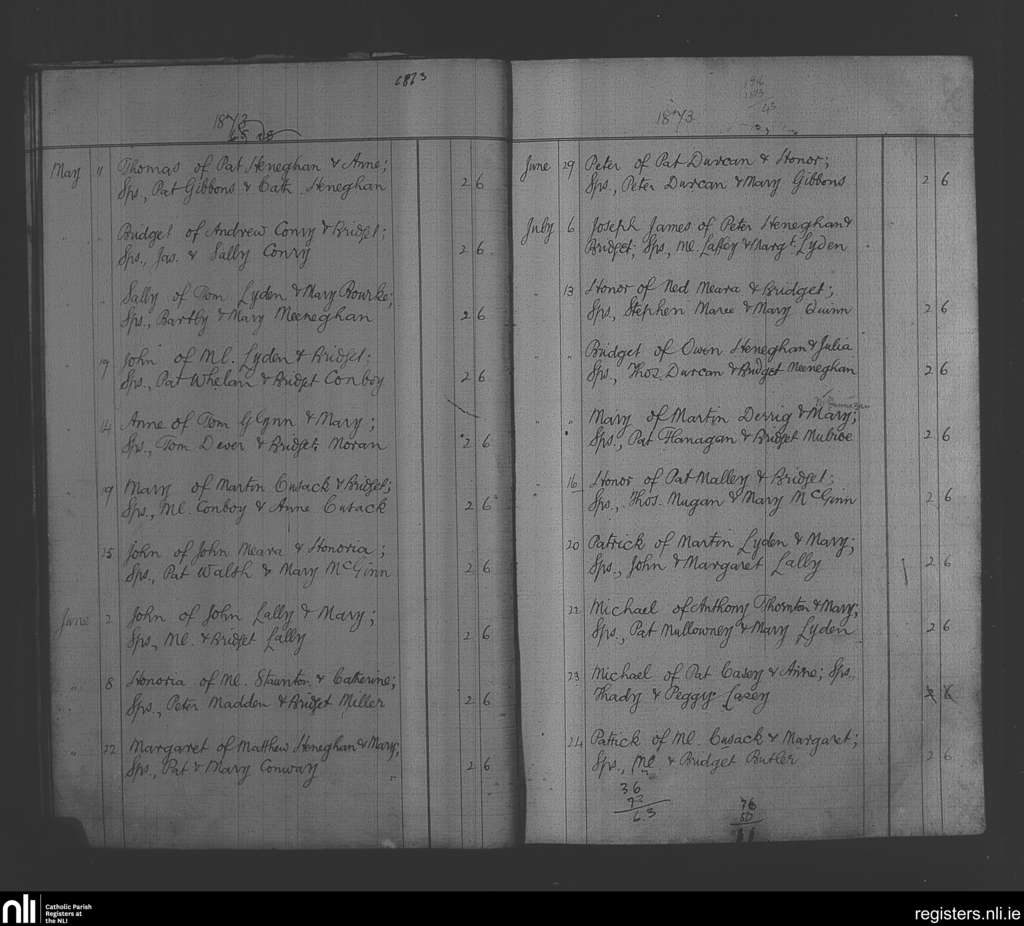 1873
1873
May 11 Thomas of Pat Heneghan & Anne;
Sps., Pat Gibbons & Cath. Heneghan 2 6
" " Bridget of Andrew Conry & Bridget;
Sps., Jas. & Sally Conry 2 6
" " Sally of Tom Lyden & Mary Bourke;
Sps., Bartly & Mary Meeneghan 2 6
" 19 John of Ml. Lyden & Bridget;
Sps., Pat Whelan & Bridget Conboy 2 6
" 14 Anne of Tom Glynn & Mary;
Sps., Tom Dever & Bridget Moran 2 6
" 19 Mary of Martin Cusack & Bridget;
Sps., Ml. Conboy & Anne Cusack 2 6
" 25 John of John Meara & Honoria;
Sps., Pat Walsh & Mary McGinn 2 6
June 2 John of John Lally & Mary;
Sps., Ml. & Bridget Lally 2 6
" 8 Honoria of Ml. Staunton & Catherine;
Sps., Peter Madden & Bridget Miller 2 6
" 22 Margaret of Matthew Heneghan & Mary;
Sps., Pat & Mary Conway 2 6
1873
June 29 Peter of Pat Durcan & Honor;
Sps., Peter Durcan & Mary Gibbons 2 6
July 6 Joseph James of Peter Heneghan &
Bridget; Sps, Ml. Laffey & Margt. Lyden
" 13 Honor of Ned Meara & Bridget;
Sps, Stephen Maree & Mary Quinn 2 6
" " Bridget of Owen Heneghan & Julia
Sps., Thos. Durcan & Bridget Meeneghan 2 6
" " Mary of Martin Derrig & Mary;
Sps., Pat Flanagan & Bridget Mulroe 2 6
" 16 Honor of Pat Malley & Bridget;
Sps., Thos. Nugan & Mary McGinn 2 6
20 Patrick of Martin Lyden & Mary;
Sps., John & Margaret Lally 2 6
22 Michael of Anthony Thornton & Mary;
Sps., Pat Mullowney & Mary Lyden 2 6
23 Michael of Pat Casey & Anne; Sps.
Thady & Peggy Casey 2 6
24 Patrick of Ml. Cusack & Margaret;
Sps., Ml & Bridget Butler 2 6
36
76
nli
Catholic Parish
Registers at
the NLI
registers.nli.ie